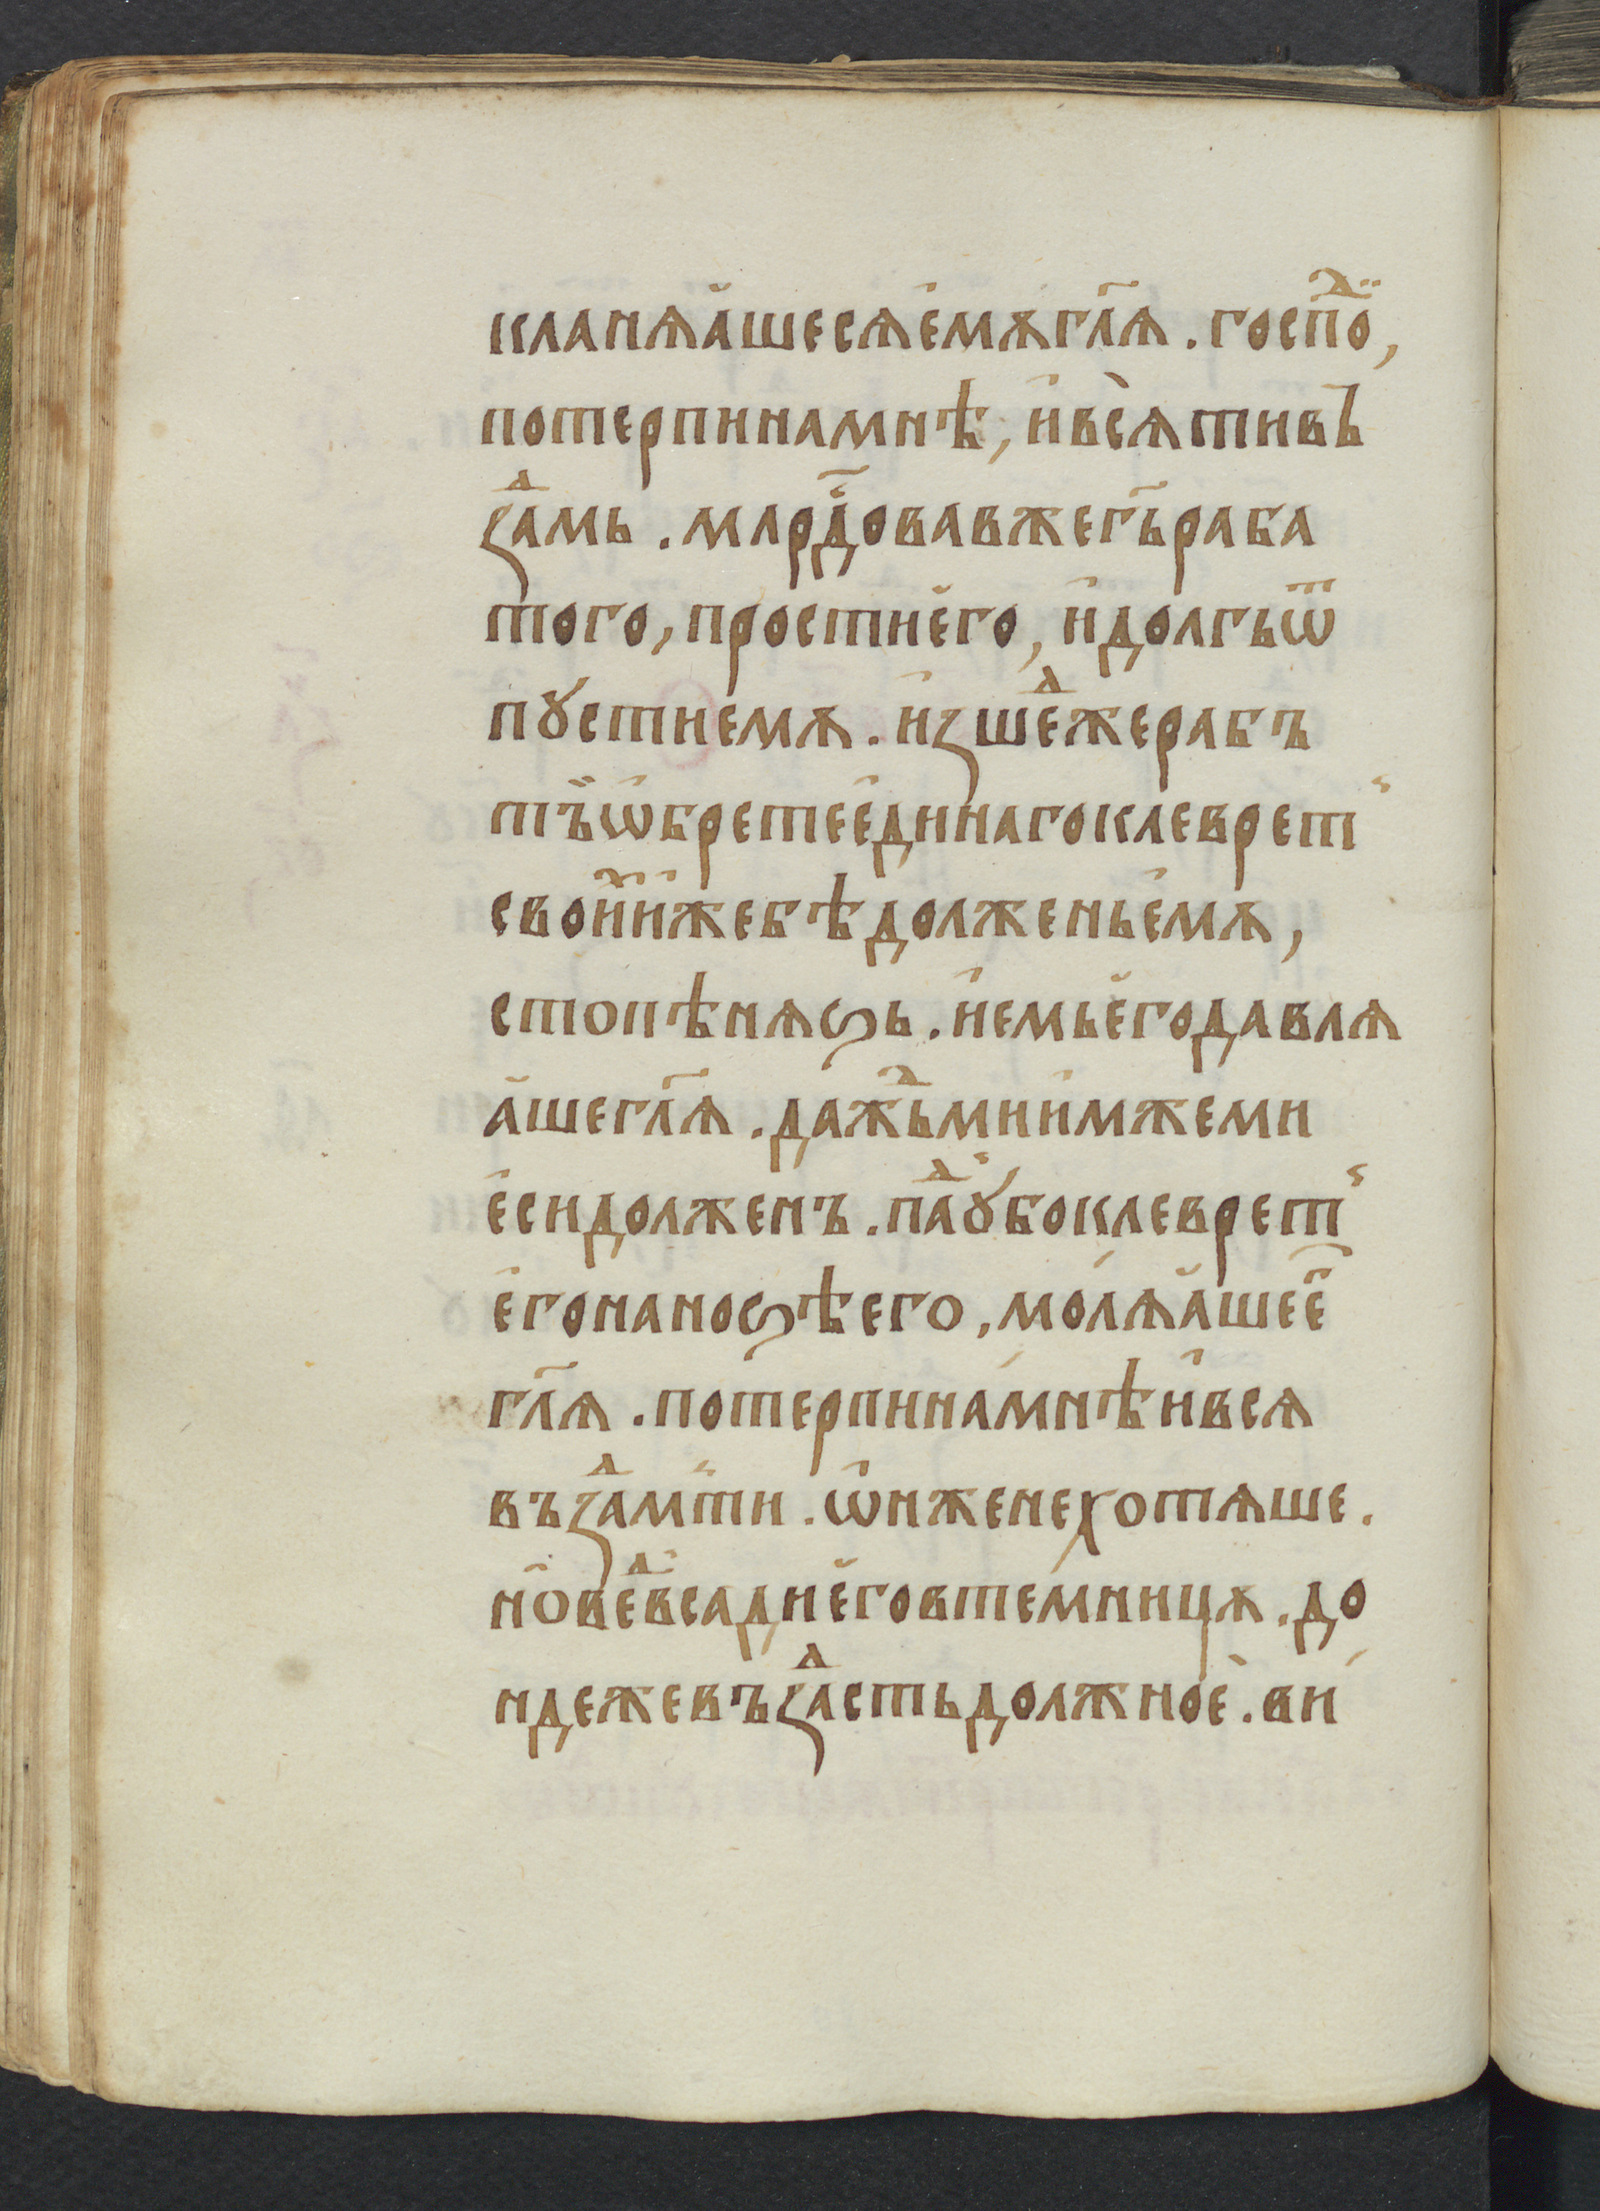 кланѧ҆ашесѧе҆мѫгл҃ѧ . госпⷣо ,
потерпинамнѣ , и҆всѧ̀тивъ
ꙁⷣамь . млрⷣовавжегь҃раба
того , простиего҆ , и҆долгьѿ
пꙋстиемѫ . и҆ꙁшеⷣжерабъ
тъ҆ѡ҆бретее҆динагоклеврет҆
свои҆хиⷤебѣдолженьемѫ ,
стопѣнѧꙃь . и҆емьего҆давлѧ
а҆шегл҃ѧ . дажⷣьмиимжеми
е҆сидолженъ . паⷣꙋ҆боклеврет҆
е҆гонаноꙃѣего , мо́лѧа҆шее҆
гл҃ѧ . потерпина́мнѣи҆всѧ
въꙁⷣамти . ѡ҆нженехотѧше .
но҆веⷣвсадиего҆вте́мницѫ . до
ндежевъꙁⷣастьдолжноѐ . ви́